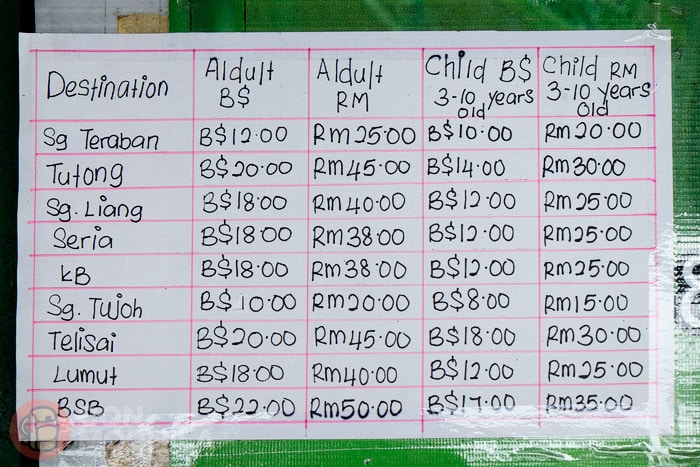 Destination Aldult B$ Aldult RM Child B$ 3-10 years old Child RM 3-10 years old
Sg Teraban B$12.00 RM25.00 B$10.00 RM20.00
Tutong B$20.00 RM45.00 B$14.00 RM30.00
Sg. Liang B$18.00 RM40.00 B$12.00 RM25.00
Seria B$18.00 RM38.00 B$12.00 RM25.00
KB B$18.00 RM38.00 B$12.00 RM25.00
Sg. Tujoh B$10.00 RM20.00 B$8.00 RM15.00
Telisai B$20.00 RM45.00 B$18.00 RM30.00
Lumut B$18.00 RM40.00 B$12.00 RM25.00
BSB B$22.00 RM50.00 B$17.00 RM35.00